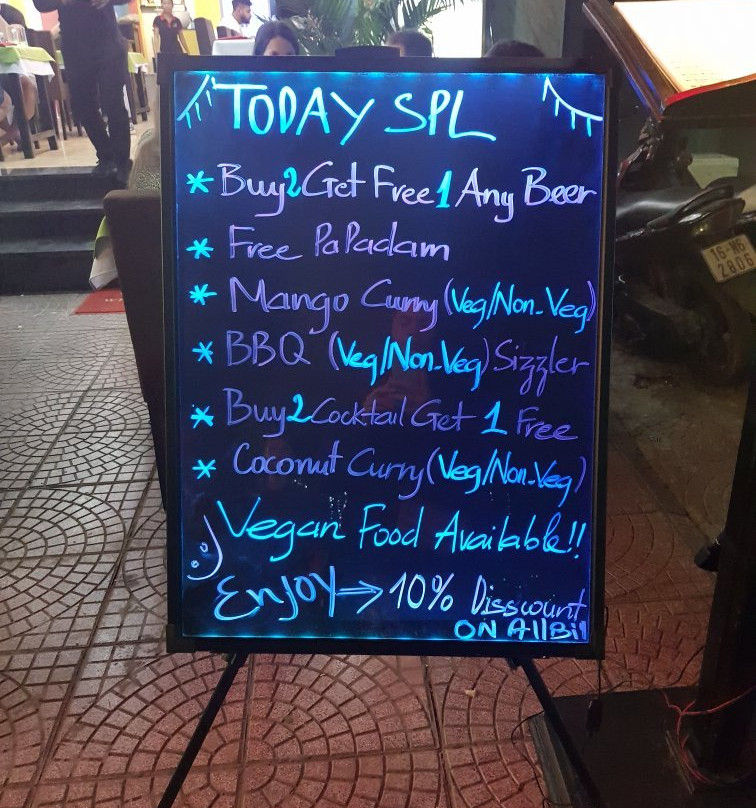 TODAY SPL
* Buy 2 Get Free 1 Any Beer
* Free PaPadam
* Mango Curry (Veg/Non-Veg)
* BBQ (Veg/Non-Veg) Sizzler
* Buy 2 Cocktail Get 1 Free
* Coconut Curry (Veg/Non-Veg)
Vegan Food Available!!
Enjoy → 10% Disscount
ON AllBill
16-M6
2806